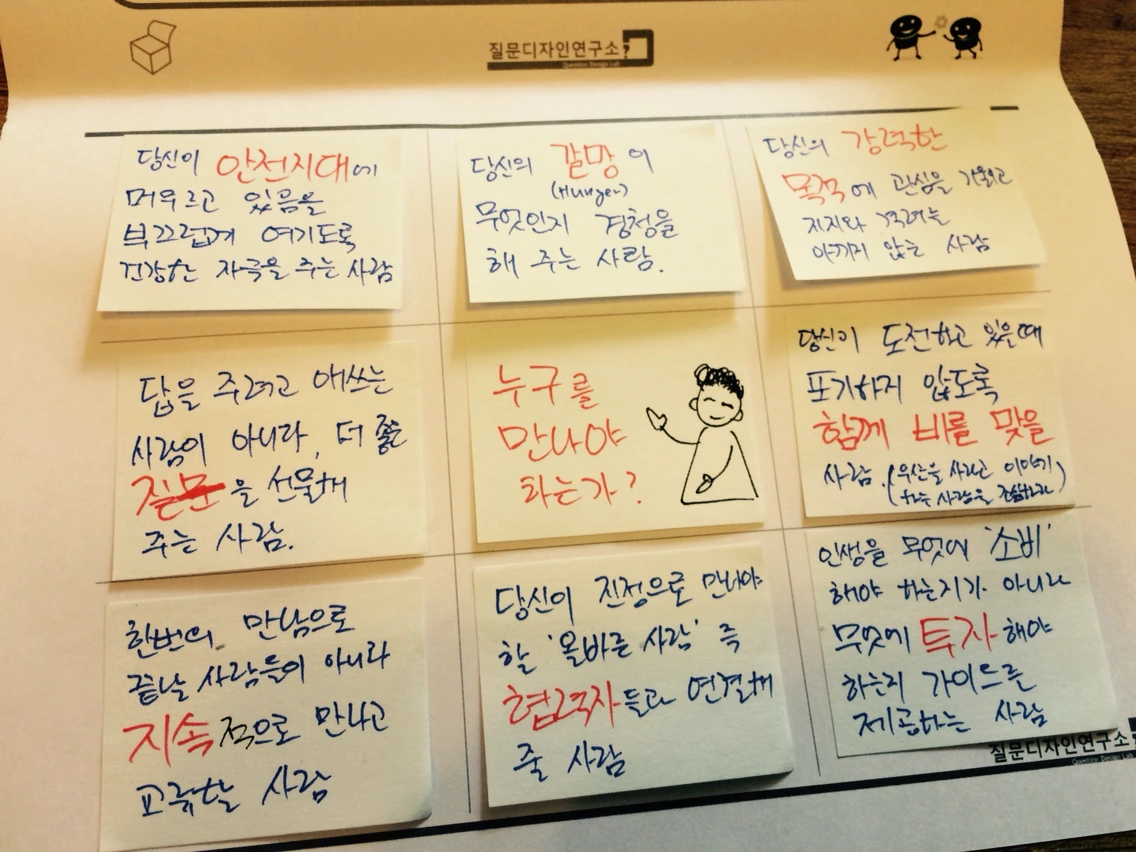 질문디자인연구소?
Question Design Lab.
당신이 안전지대에
머무르고 있음을
부끄럽게 여기도록
건강한 자극을 주는 사람
당신의 갈망이
(Hunger)
무엇인지 경청을
해 주는 사람.
당신의 강력한
목적에 관심을 기울이고
지지와 격려를
아끼지 않는 사람
답을 주려고 애쓰는
사람이 아니라, 더 좋은
질문을 선물해
주는 사람.
누구를
만나야
하는가?
당신이 도전하고 있을때
포기하지 않도록
함께 비를 맞을
사람. (우산을 사라고 이야기
하는 사람을 조심하라)
한번의 만남으로
끝날 사람들이 아니라
지속적으로 만나고
교류할 사람
당신이 진정으로 만나야
할 '올바른 사람' 즉
협력자들과 연결해
줄 사람
인생을 무엇에 '소비'
해야 하는지가 아니라
무엇에 투자해야
하는지 가이드를
제공하는 사람
질문디자인연구소?
Question Design Lab.